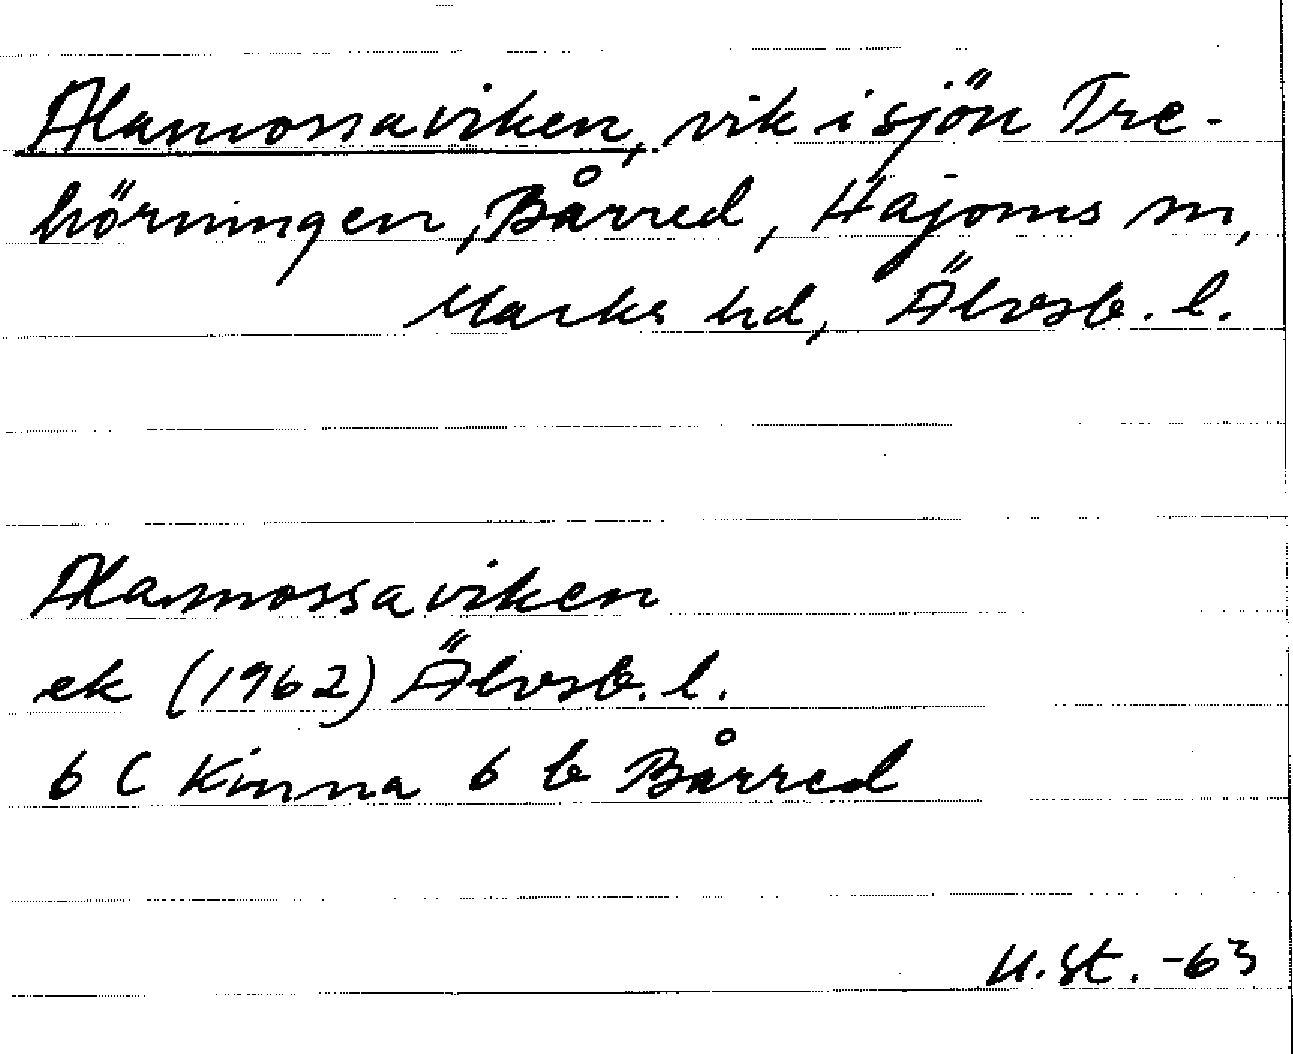 Alamossaviken, vik i sjön Tre-
hörningen, Bårred, Hajoms sn,
Marks hd, Älvsb. l.
Alamossaviken
ek (1962) Älvsb. l.
6 C Kinna 6 b Bårred
U. St. -63